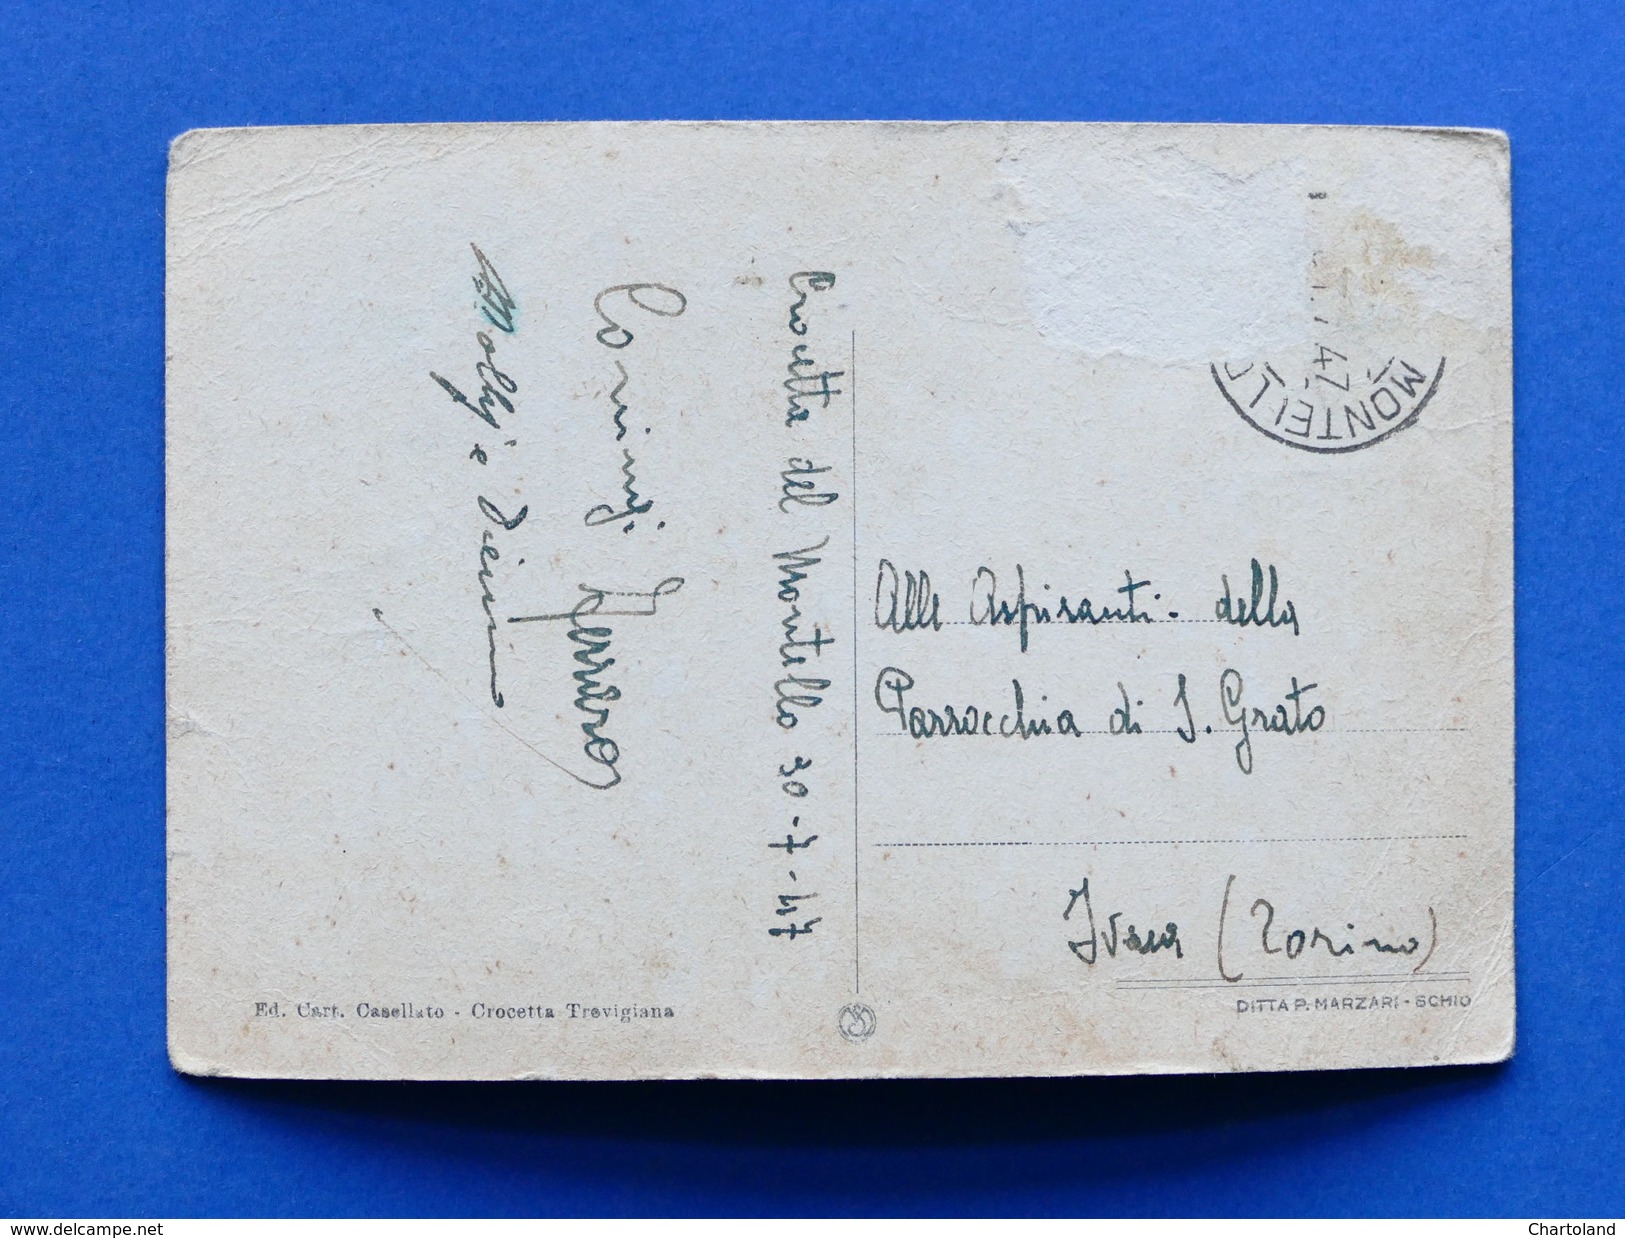 Crocetta del Montello 30-7-47
Corinigi
Ferrero
Molly e
MONTELLO
7 47
Alle Aspiranti della
Parrocchia di S. Grato
Ivrea (Torino)
Ed. Cart. Casellato - Crocetta Trevigiana
DITTA P. MARZARI - SCHIO
www.delcampe.net
Chartoland